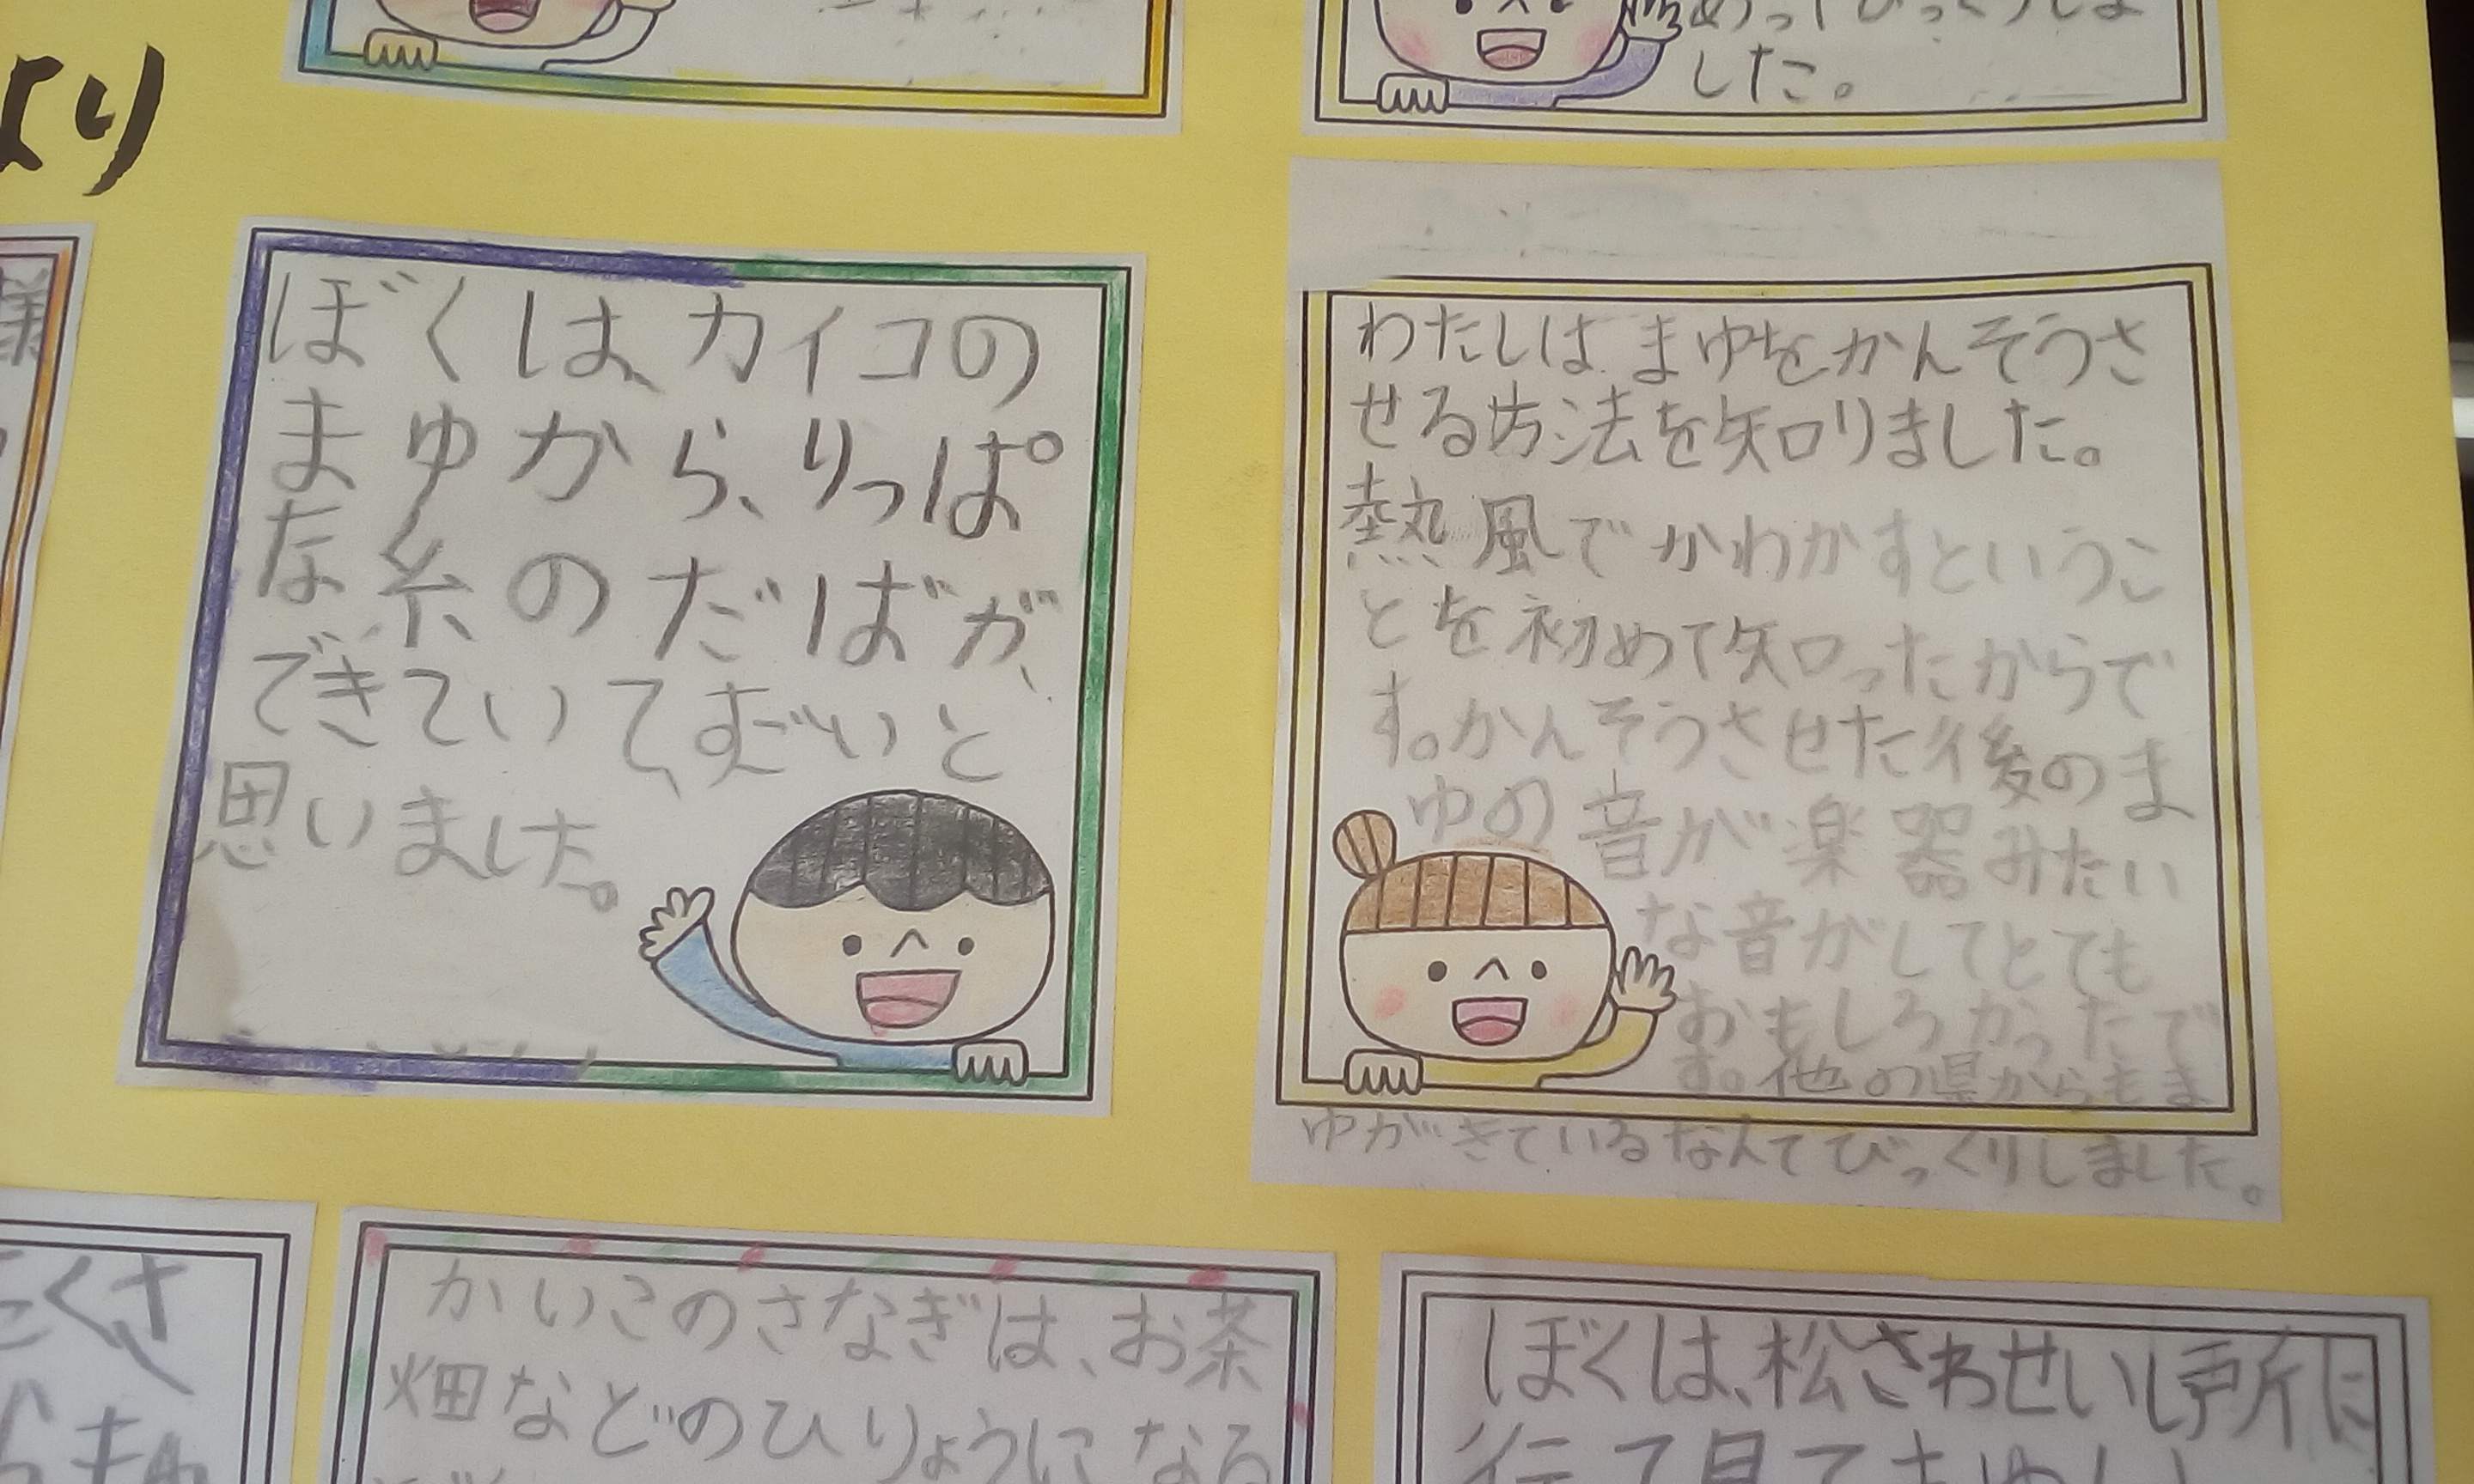 より
した。
様
ぼくは、カイコの
まゆから、りっぱ
な糸のだばが、
できていて、すごいと
思いました。
わたしは まゆをかんそうさ
せる方法を知りました。
熱風でかわかすというこ
とを初めて知ったからで
す。かんそうさせた後のま
ゆの音が楽器みたい
な音がしてとても
おもしろかったで
す。他の県からもま
ゆがきているなんてびっくりしました。
たくさ
かいこのさなぎは、お茶
畑などのひりょうになる
ぼくは、松さわせいし所に
行って見て